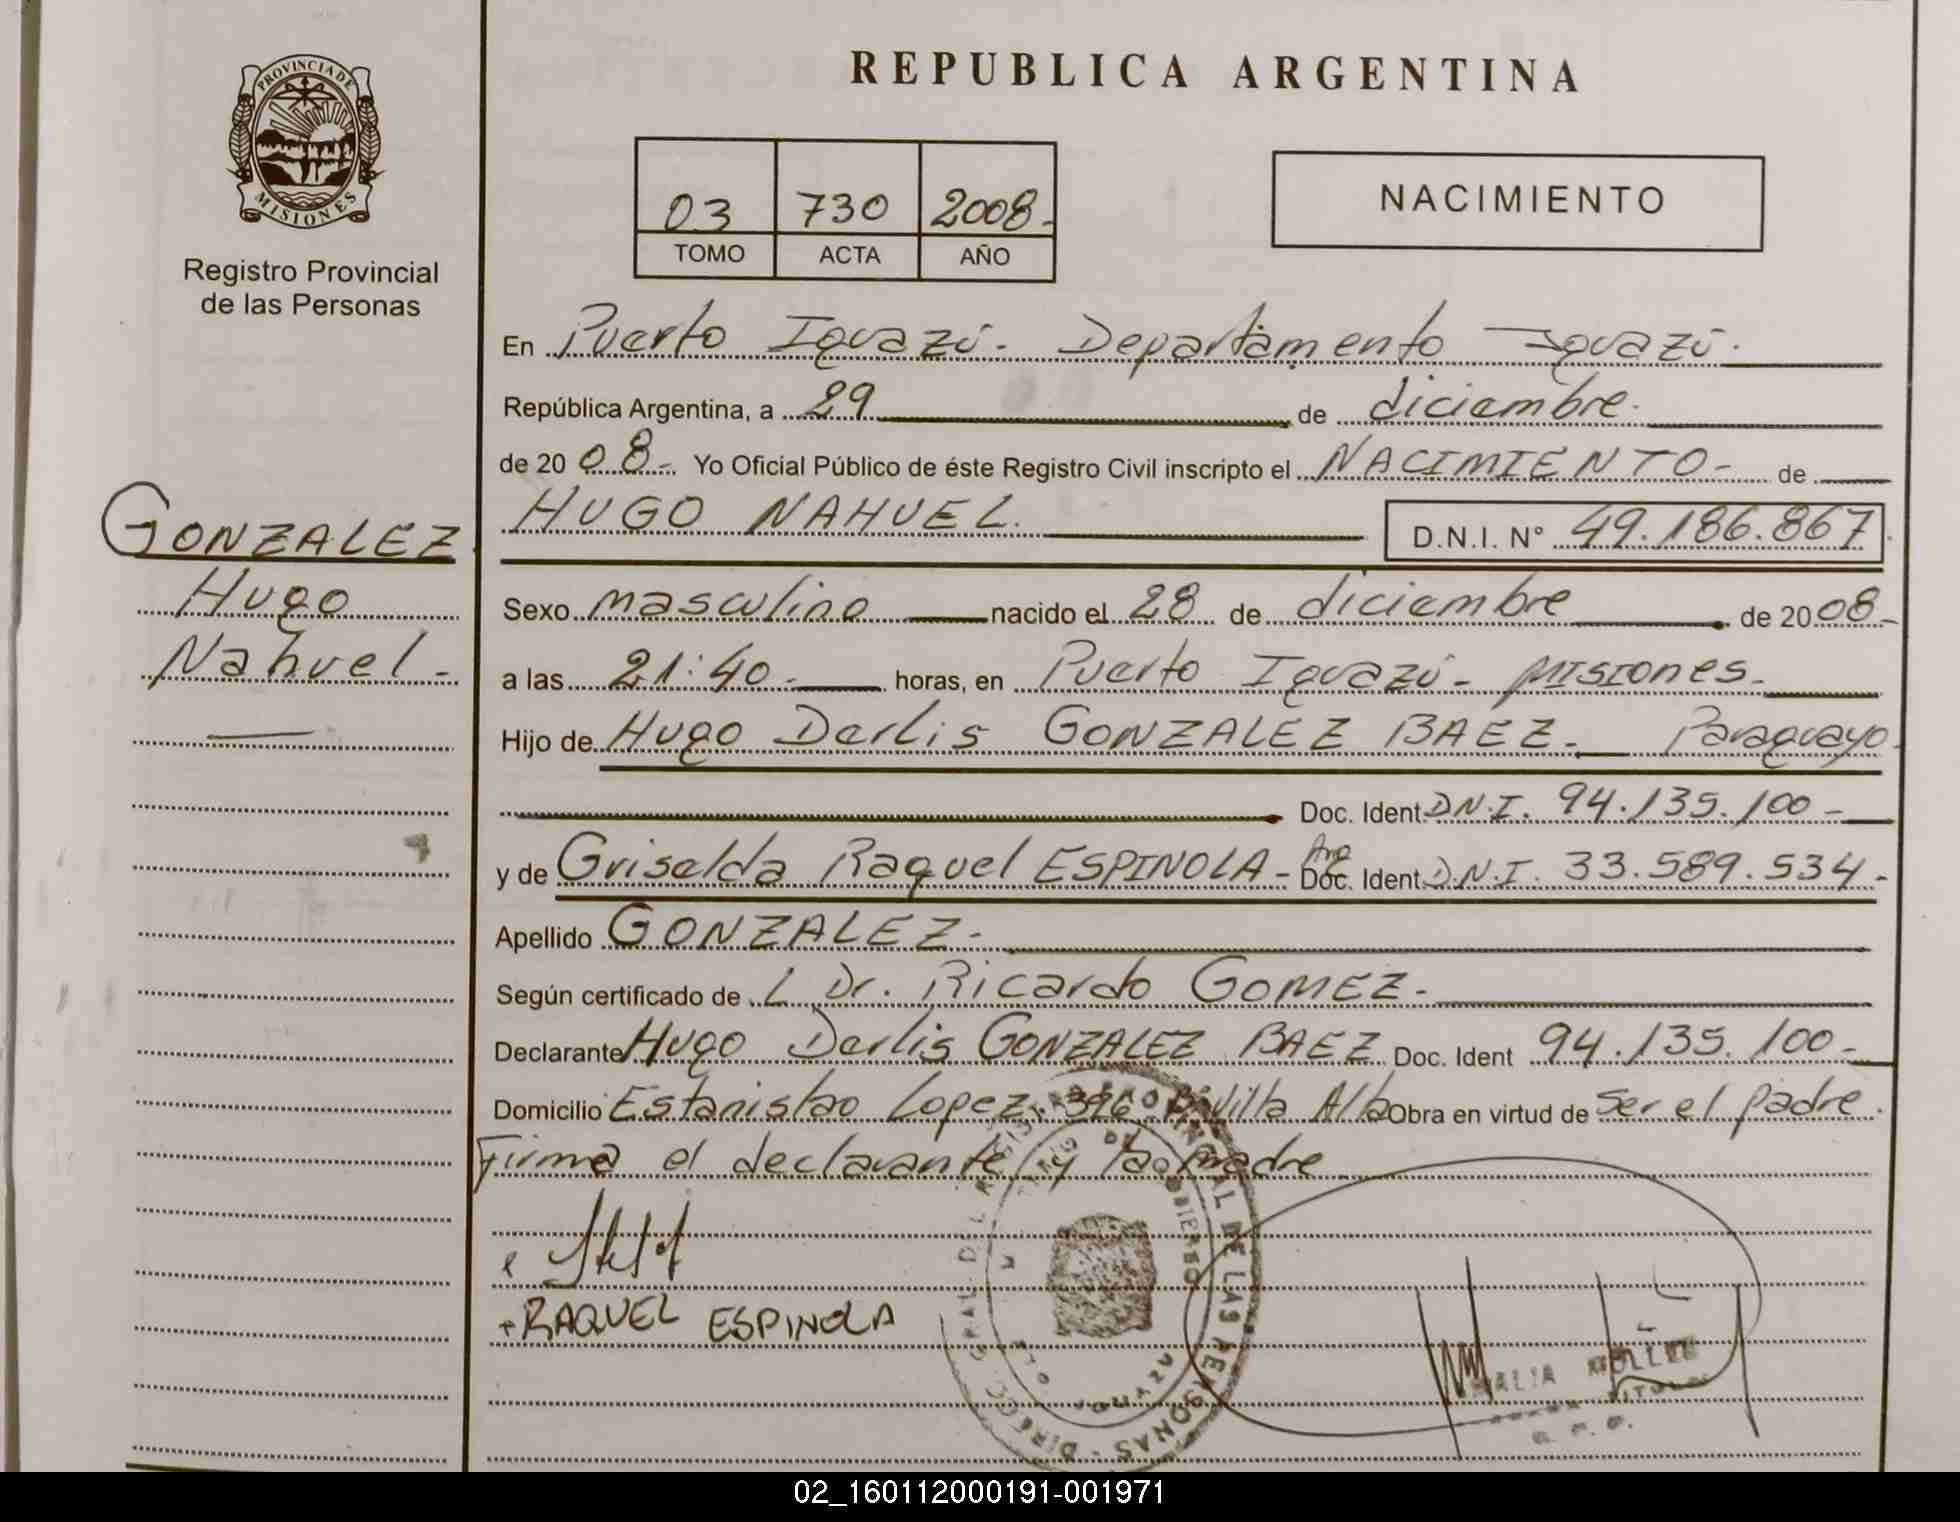 PROVINCIA DE
MISIONES
Registro Provincial
de las Personas
GONZALEZ
Hugo
Nahuel -
REPUBLICA ARGENTINA
03 730 2008-
TOMO ACTA AÑO
NACIMIENTO
En Puerto Iguazú - Departamento Iguazú.
República Argentina, a 29 de diciembre.
de 20 08- Yo Oficial Público de éste Registro Civil inscripto el NACIMIENTO- de
HUGO NAHUEL. D.N.I. N° 49.186.867
Sexo masculino nacido el 28 de diciembre de 20 08-
a las 21:40- horas, en Puerto Iguazú - MISIONES-
Hijo de Hugo Derlis GONZALEZ BAEZ- Paraguayo-
Doc. Ident D.N.I. 94.135.100-
y de Griselda Raquel ESPINOLA - Arg Doc. Ident D.N.I. 33.589.534-
Apellido GONZALEZ-
Según certificado de L Dr. Ricardo GOMEZ-
Declarante Hugo Derlis GONZALEZ BAEZ Doc. Ident 94.135.100-
Domicilio Estanislao Lopez 396 Villa Alta Obra en virtud de Ser el padre.
Firma el declarante y la madre
RAQUEL ESPINOLA
DE LAS PERSONAS
02_160112000191-001971